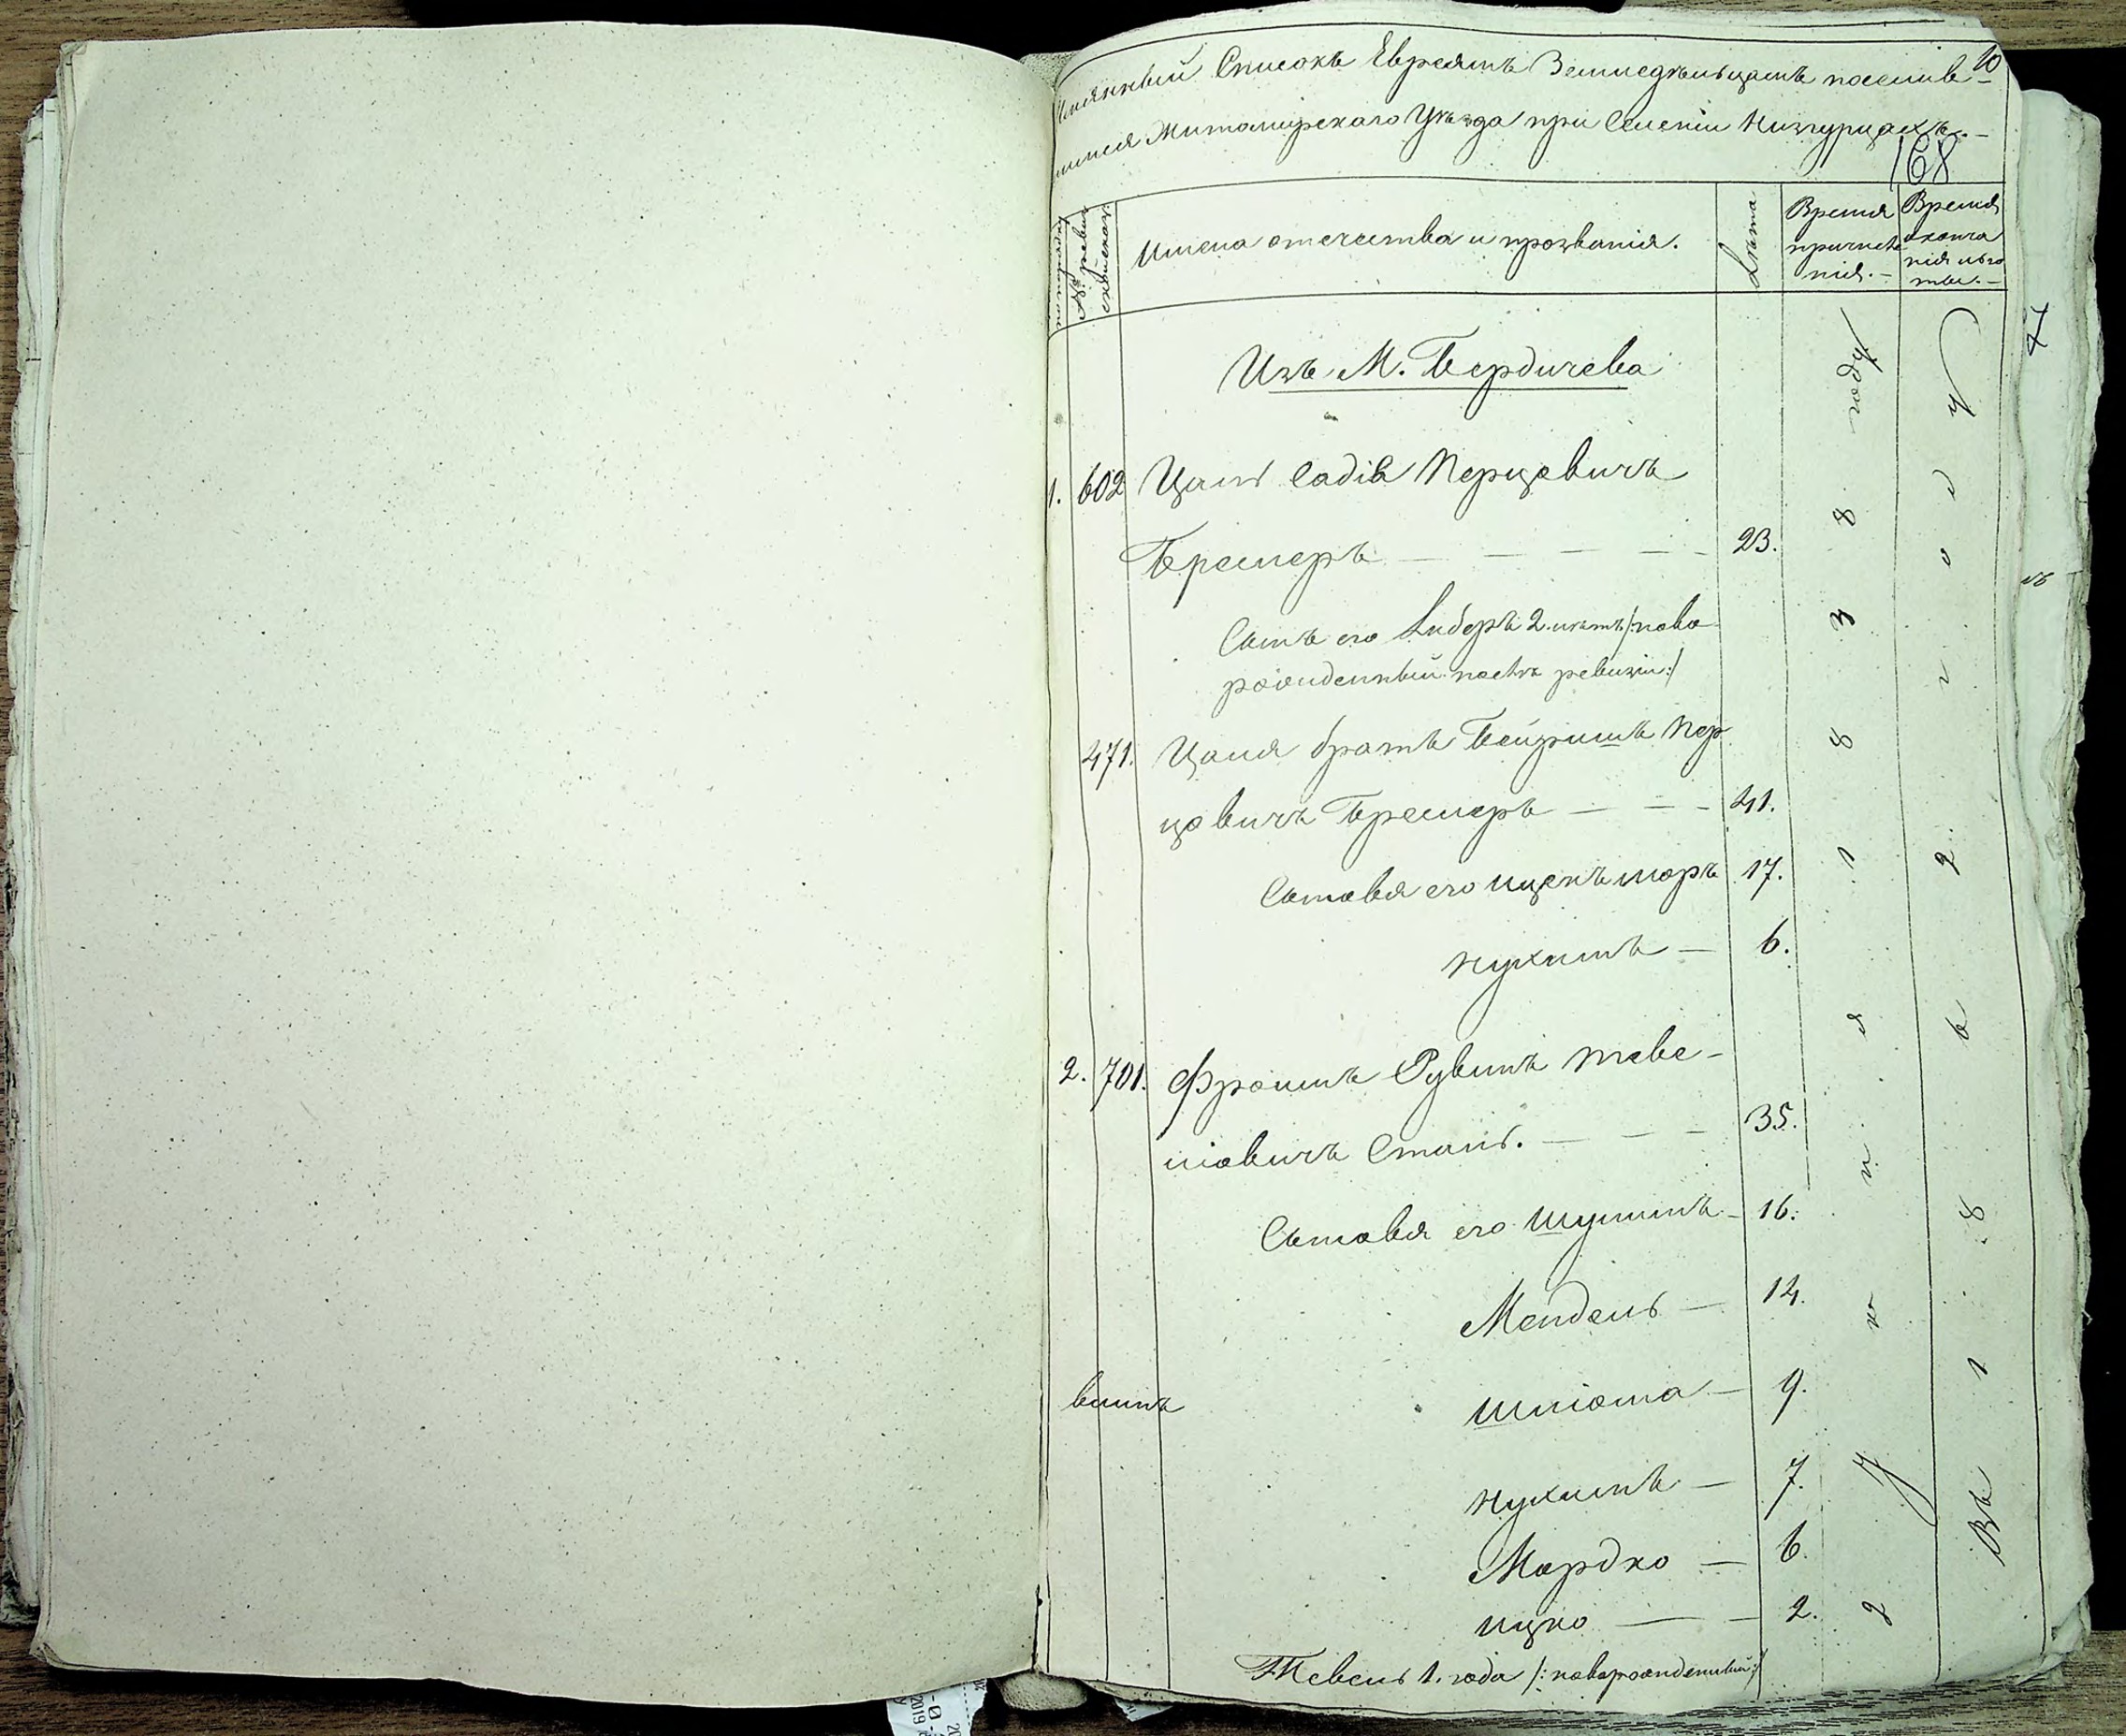 Имянный Списокъ Евреямъ Земледѣльцамъ поселив-
шимся Житомирскаго Уѣзда при Селеніи Низгурцахъ.-
10
168
№ ревизск
сказкамъ.
Имена отечества и прозванія.
Лѣта
Время
причисле
нія.-
Время
оконча
нія льго
ты.-
Изъ М. Бердичева
1. 602 Цаль Садів Перцовичъ
Бремеръ 23.
Сынъ его Либеръ 2 лѣтъ /:ново
рожденный послѣ ревизіи:/
471. Цаля братъ Бейришъ Пер
цовичъ Бремеръ 41.
Сыновья его Ицекъ Шоръ 17.
Нухимъ 6.
2. 701. Фроимъ Рувинъ Теве-
ліовичъ Сталь. 35.
Сыновья его Шулимъ 16.
Мендель 14.
Шліома 9.
Нухимъ 7.
Мордко 6.
Ицко 2.
Тевель 1. года /:новорожденный:/
2 Іюня 1838 году
Въ 18 2 году